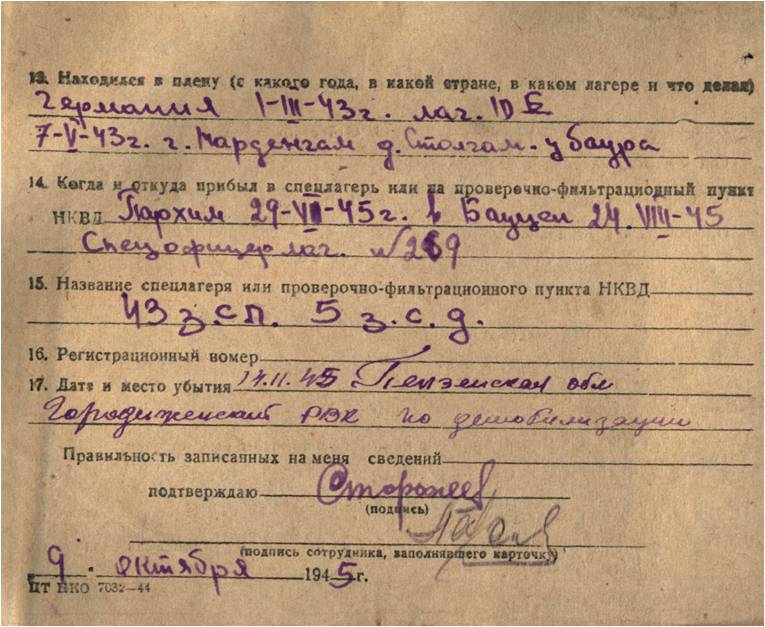 13. Находился в плену (с какого года, в какой стране, в каком лагере и что делал)
Германия 1-III-43г. лаг. ID E
7-V-43г. г. Марденгам д. Столгам. у баура
14. Когда и откуда прибыл в спецлагерь или на проверочно-фильтрационный пункт
НКВД Пархим 29-VII-45г. в Бауцен 24.VIII-45
Спецофицер лаг. №269
15. Название спецлагеря или проверочно-фильтрационного пункта НКВД
43 з.сп. 5 з.с.д.
16. Регистрационный номер
17. Дата и место убытия 14.11.45 Пензенская обл
Городищенский РВК по демобилизации
Правильность записанных на меня сведений
подтверждаю Сторожев
(подпись)
(подпись сотрудника, заполнявшего карточку)
9. октября 1945г.
ПТ НКО 7032—44